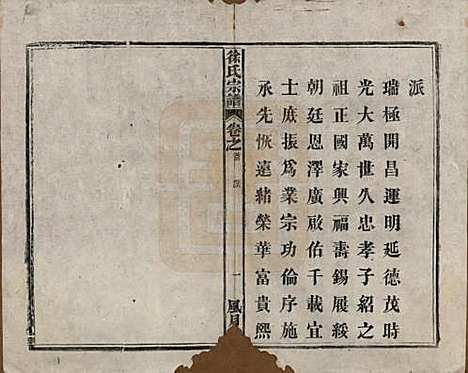 派
瑞極開昌運明延德茂時
光大萬世久忠孝子紹之
祖正國家興福壽錫展綏
朝廷恩澤廣啟佑千載宜
士庶振爲業宗功倫序施
承先恢遠緒榮華富貴熙
徐氏宗譜
卷之首
派
一